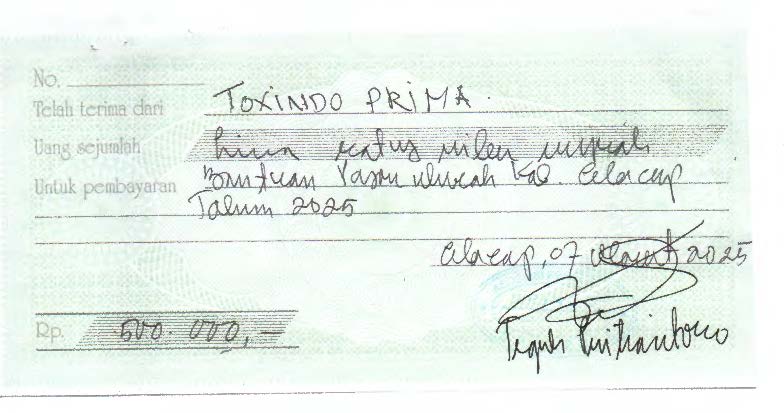 No.
Telah terima dari TOXINDO PRIMA.
Uang sejumlah lima ratus ribu rupiah
Untuk pembayaran Bantuan Kab. Cilacap
Tahun 2025
Cilacap, 07 Maret 2025
Rp. 500.000,-
Teguh